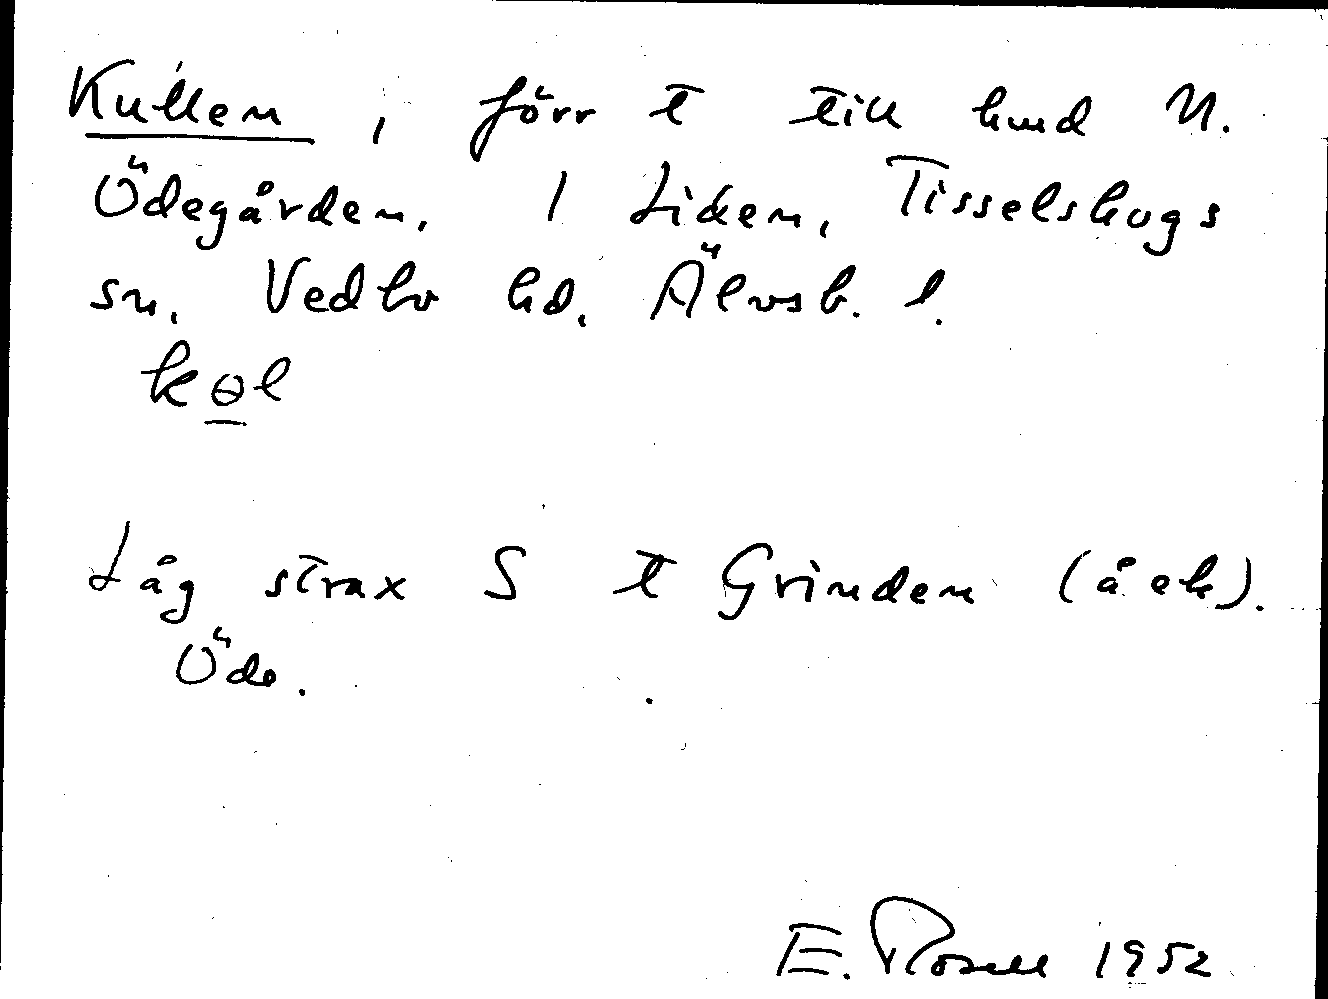 Kullen, förr t till hmd N.
Ödegården, 1 Liden, Tisselskogs
sn, Vedbo hd, Älvsb. l.
kɵl
Låg strax S t Grinden (å ek).
Öde.
E. Rosell 1952